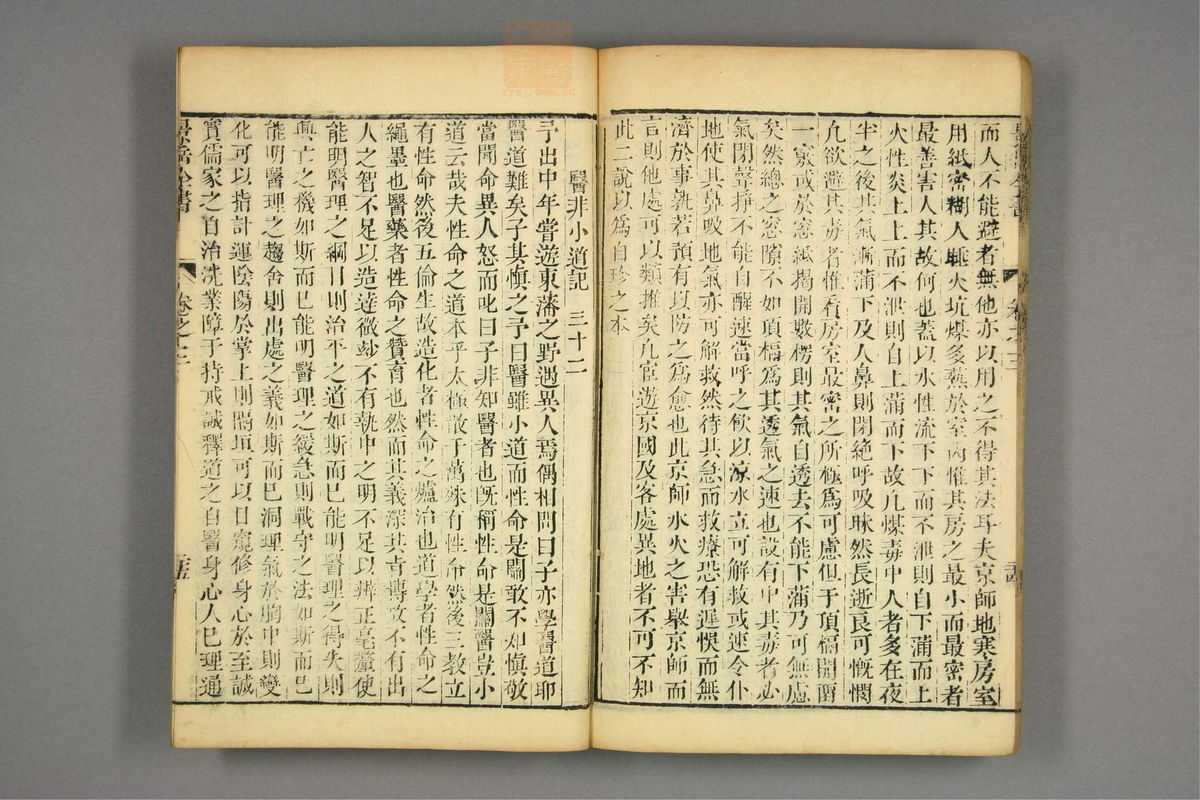 而人不能避者無他亦以用之不得其法耳夫京師地寒房室
用紙密糊人睡火坑煤多爇於室內惟其房之最小而最密者
最善害人其故何也蓋以水性流下下而不泄則自下滿而上
火性炎上上而不泄則自上滿而下故凡煤毒中人者多在夜
半之後其氣漸滿下及人鼻則閉絕呼吸昧然長逝良可慨憫
凡欲避其毒者惟看房室最密之所極為可慮但于頂槅開留
一竅或於窓紙揭開數楞則其氣自透去不能下滿乃可無慮
矣然總之窓隙不如頂槅為其透氣之速也設有中其毒者必
氣閉聲掙不能自醒速當呼之飲以涼水立可解救或速令仆
地使其鼻吸地氣亦可解救然待其急而救療恐有遲悞而無
濟於事孰若預有以防之為愈也此京師水火之害舉京師而
言則他處可以類推矣凡宦遊京國及客處異地者不可不知
此二說以為自珍之本
醫非小道記 三十二
予出中年嘗遊東藩之野遇異人焉偶相問曰子亦學醫道耶
醫道難矣子其慎之予曰醫雖小道而性命是關敢不知慎敬
當聞命異人怒而叱曰子非知醫者也既稱性命是關醫豈小
道云哉夫性命之道本乎太極散于萬殊有性命然後三教立
有性命然後五倫生故造化者性命之爐冶也道學者性命之
繩墨也醫藥者性命之贊育也然而其義深其旨博故不有出
人之智不足以造達微玅不有執中之明不足以辨正毫釐使
能明醫理之綱目則治平之道如斯而已能明醫理之得失則
興亡之機如斯而已能明醫理之緩急則戰守之法如斯而已
能明醫理之趨舍則出處之義如斯而已洞理氣於胸中則變
化可以指計運陰陽於掌上則隔垣可以目窺修身心於至誠
實儒家之自治洗業障于持戒誠釋道之自醫身心人己理通
景岳全書 卷之三